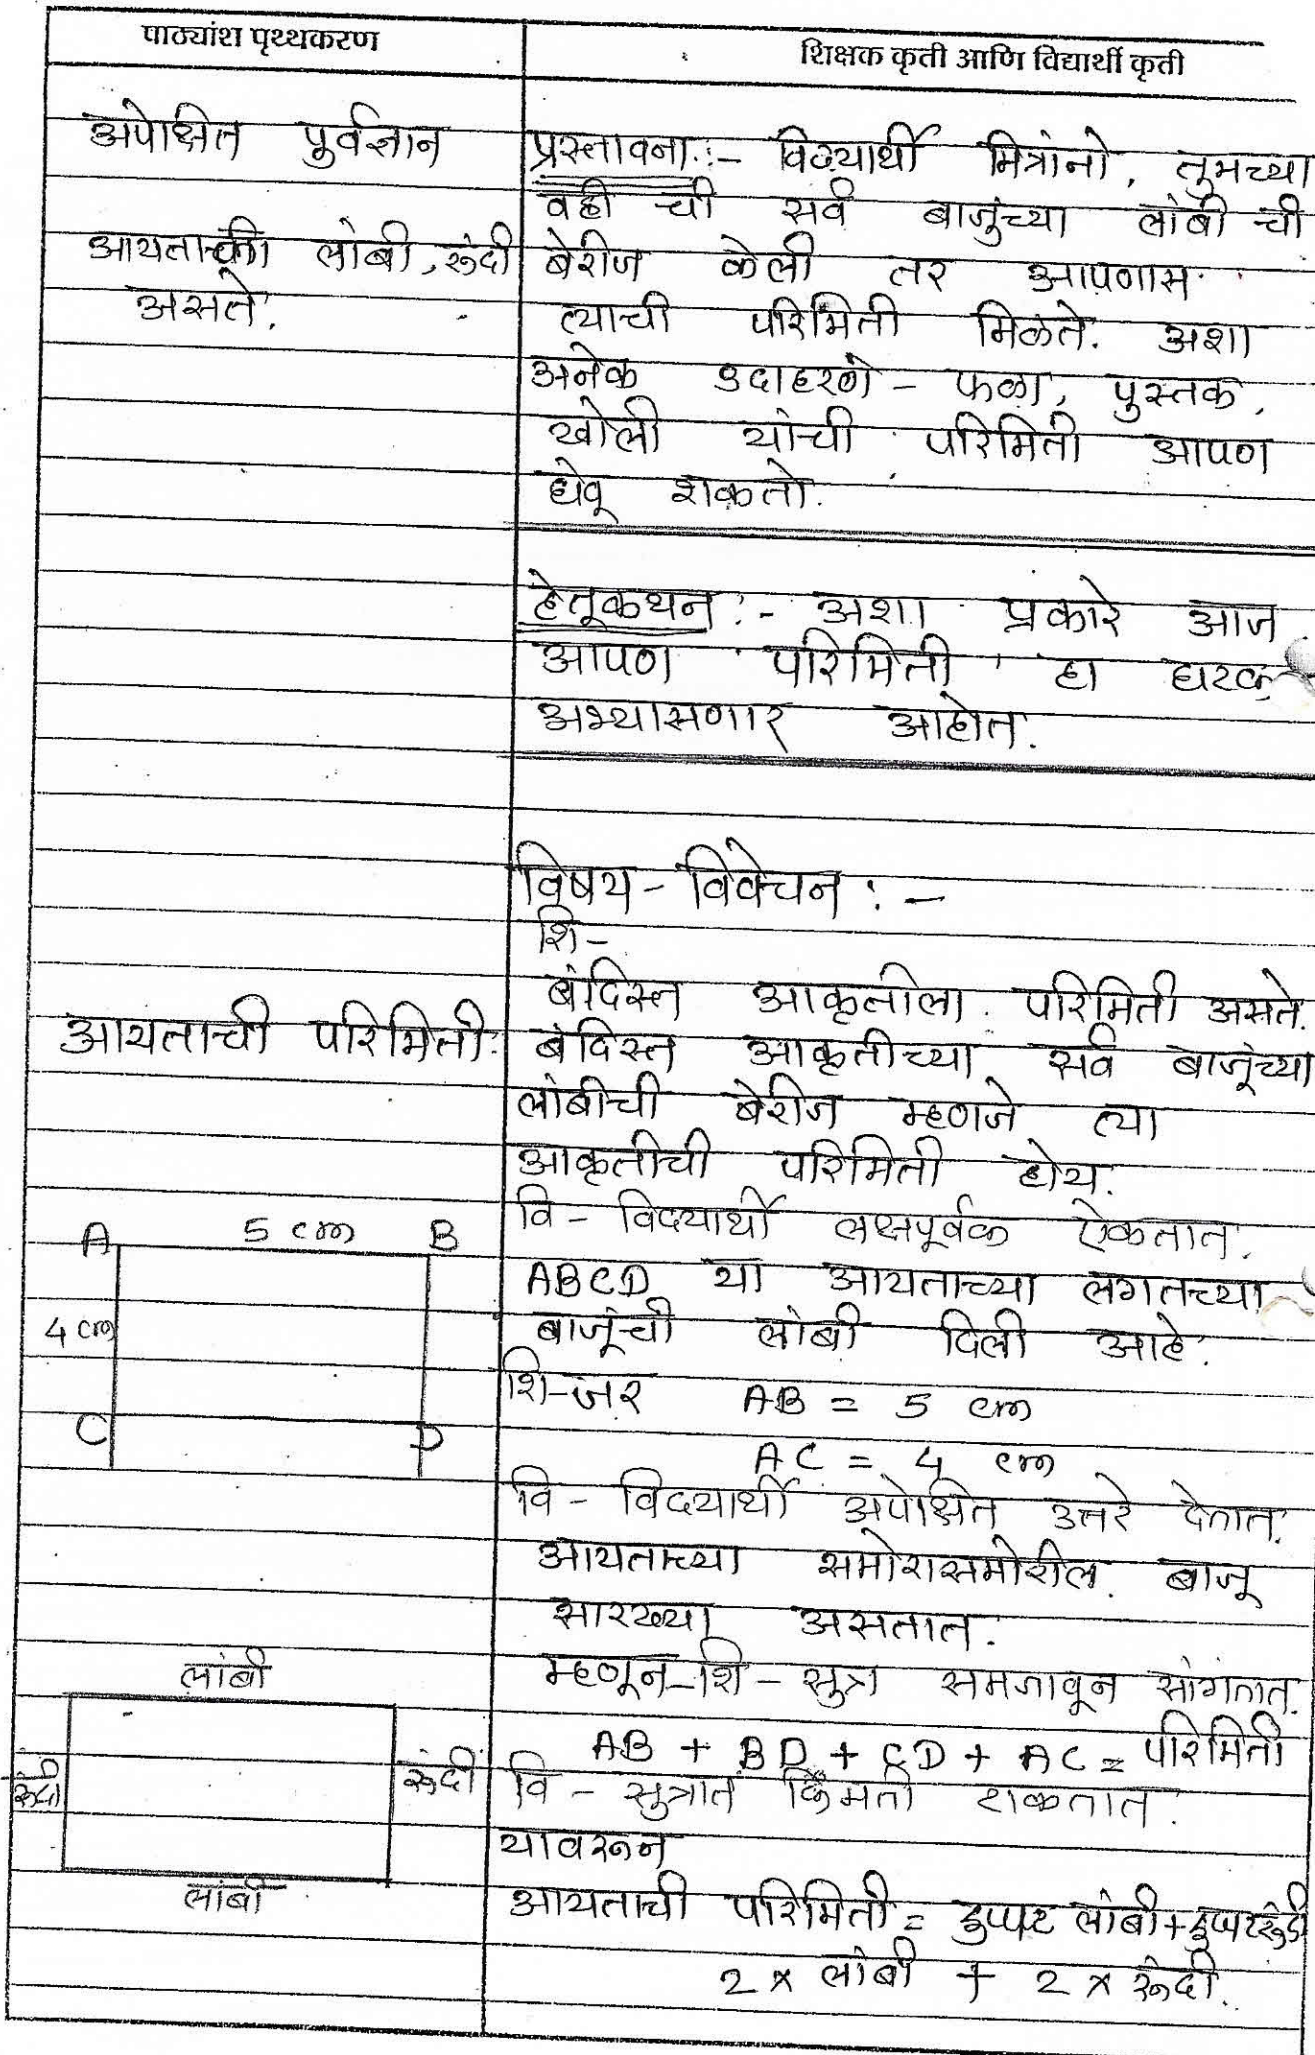 पाठ्यांश पृथ्थकरण
शिक्षक कृती आणि विद्यार्थी कृती
अपेक्षित पुर्वज्ञान
आयताची लांबी, रुंदी
असते.
प्रस्तावना :- विद्यार्थी मित्रांनो, तुमच्या
वही ची सर्व बाजुंच्या लांबी ची
बेरीज केली तर आपणास
त्याची परिमिती मिळते. अशा
अनेक उदाहरणे - फळा, पुस्तक,
खोली यांची परिमिती आपण
घेवू शकतो.
हेतूकथन :- अशा प्रकारे आज
आपण 'परिमिती' हा घटक
अभ्यासणार आहोत.
विषय - विवेचन : -
शि-
बंदिस्त आकृतीला परिमिती असते.
आयताची परिमिती:
बंदिस्त आकृतीच्या सर्व बाजूंच्या
लांबीची बेरीज म्हणजे त्या
आकृतीची परिमिती होय.
वि - विदयार्थी लक्षपूर्वक ऐकतात.
A 5 cm B
4 cm
C D
ABCD या आयताच्या लगतच्या
बाजूंची लांबी दिली आहे.
शि-जर AB = 5 cm
AC = 4 cm
वि - विदयार्थी अपेक्षित उत्तरे देतात.
आयताच्या समोरासमोरील बाजू
सारख्या असतात.
म्हणून-शि - सुत्र समजावून सांगतात.
AB + BD + CD + AC = परिमिती
वि - सुत्रात किंमती टाकतात.
यावरून
लांबी
रुंदी
रुंदी
लांबी
आयताची परिमिती = दुप्पट लांबी + दुप्पट रुंदी
2 x लांबी + 2 x रुंदी.